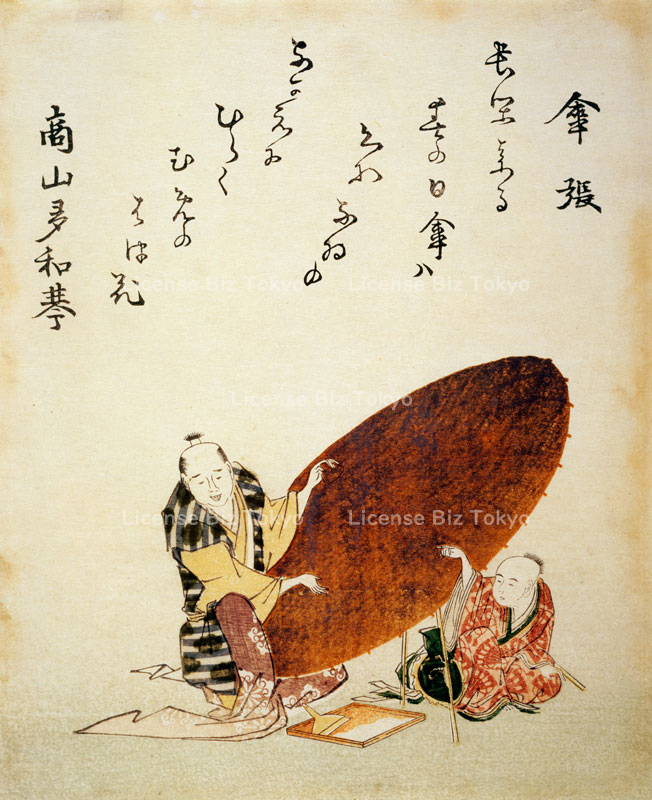 傘張
長閑なる
春の日傘ハ
くれ
なゐの
なかえに
ひらく
むめの
はつ花
商山多和琴
License Biz Tokyo
License Biz Tokyo
License Biz Tokyo
License Biz Tokyo
License Biz Tokyo